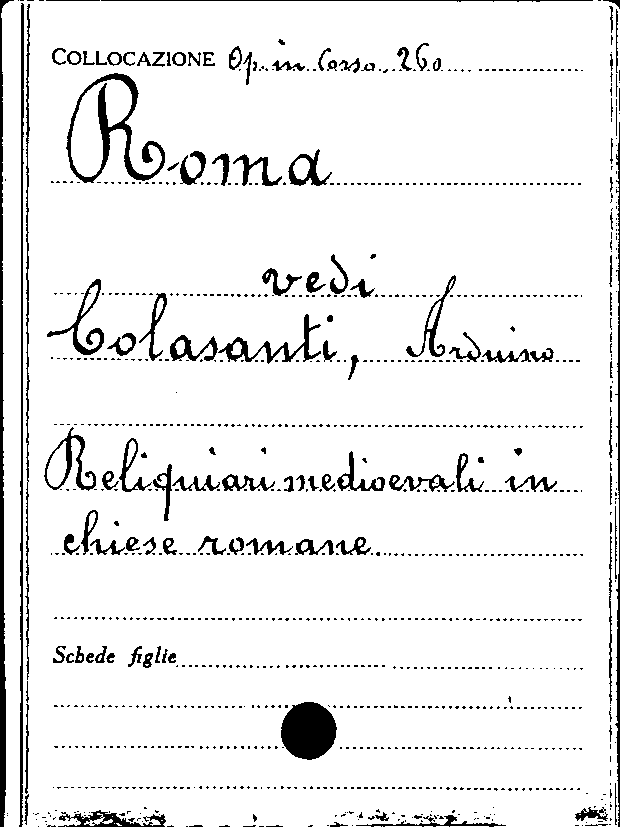 COLLOCAZIONE Op. in Corso. 260
Roma
vedi
Colasanti, Arduino
Reliquiari medioevali in
chiese romane.
Schede figlie